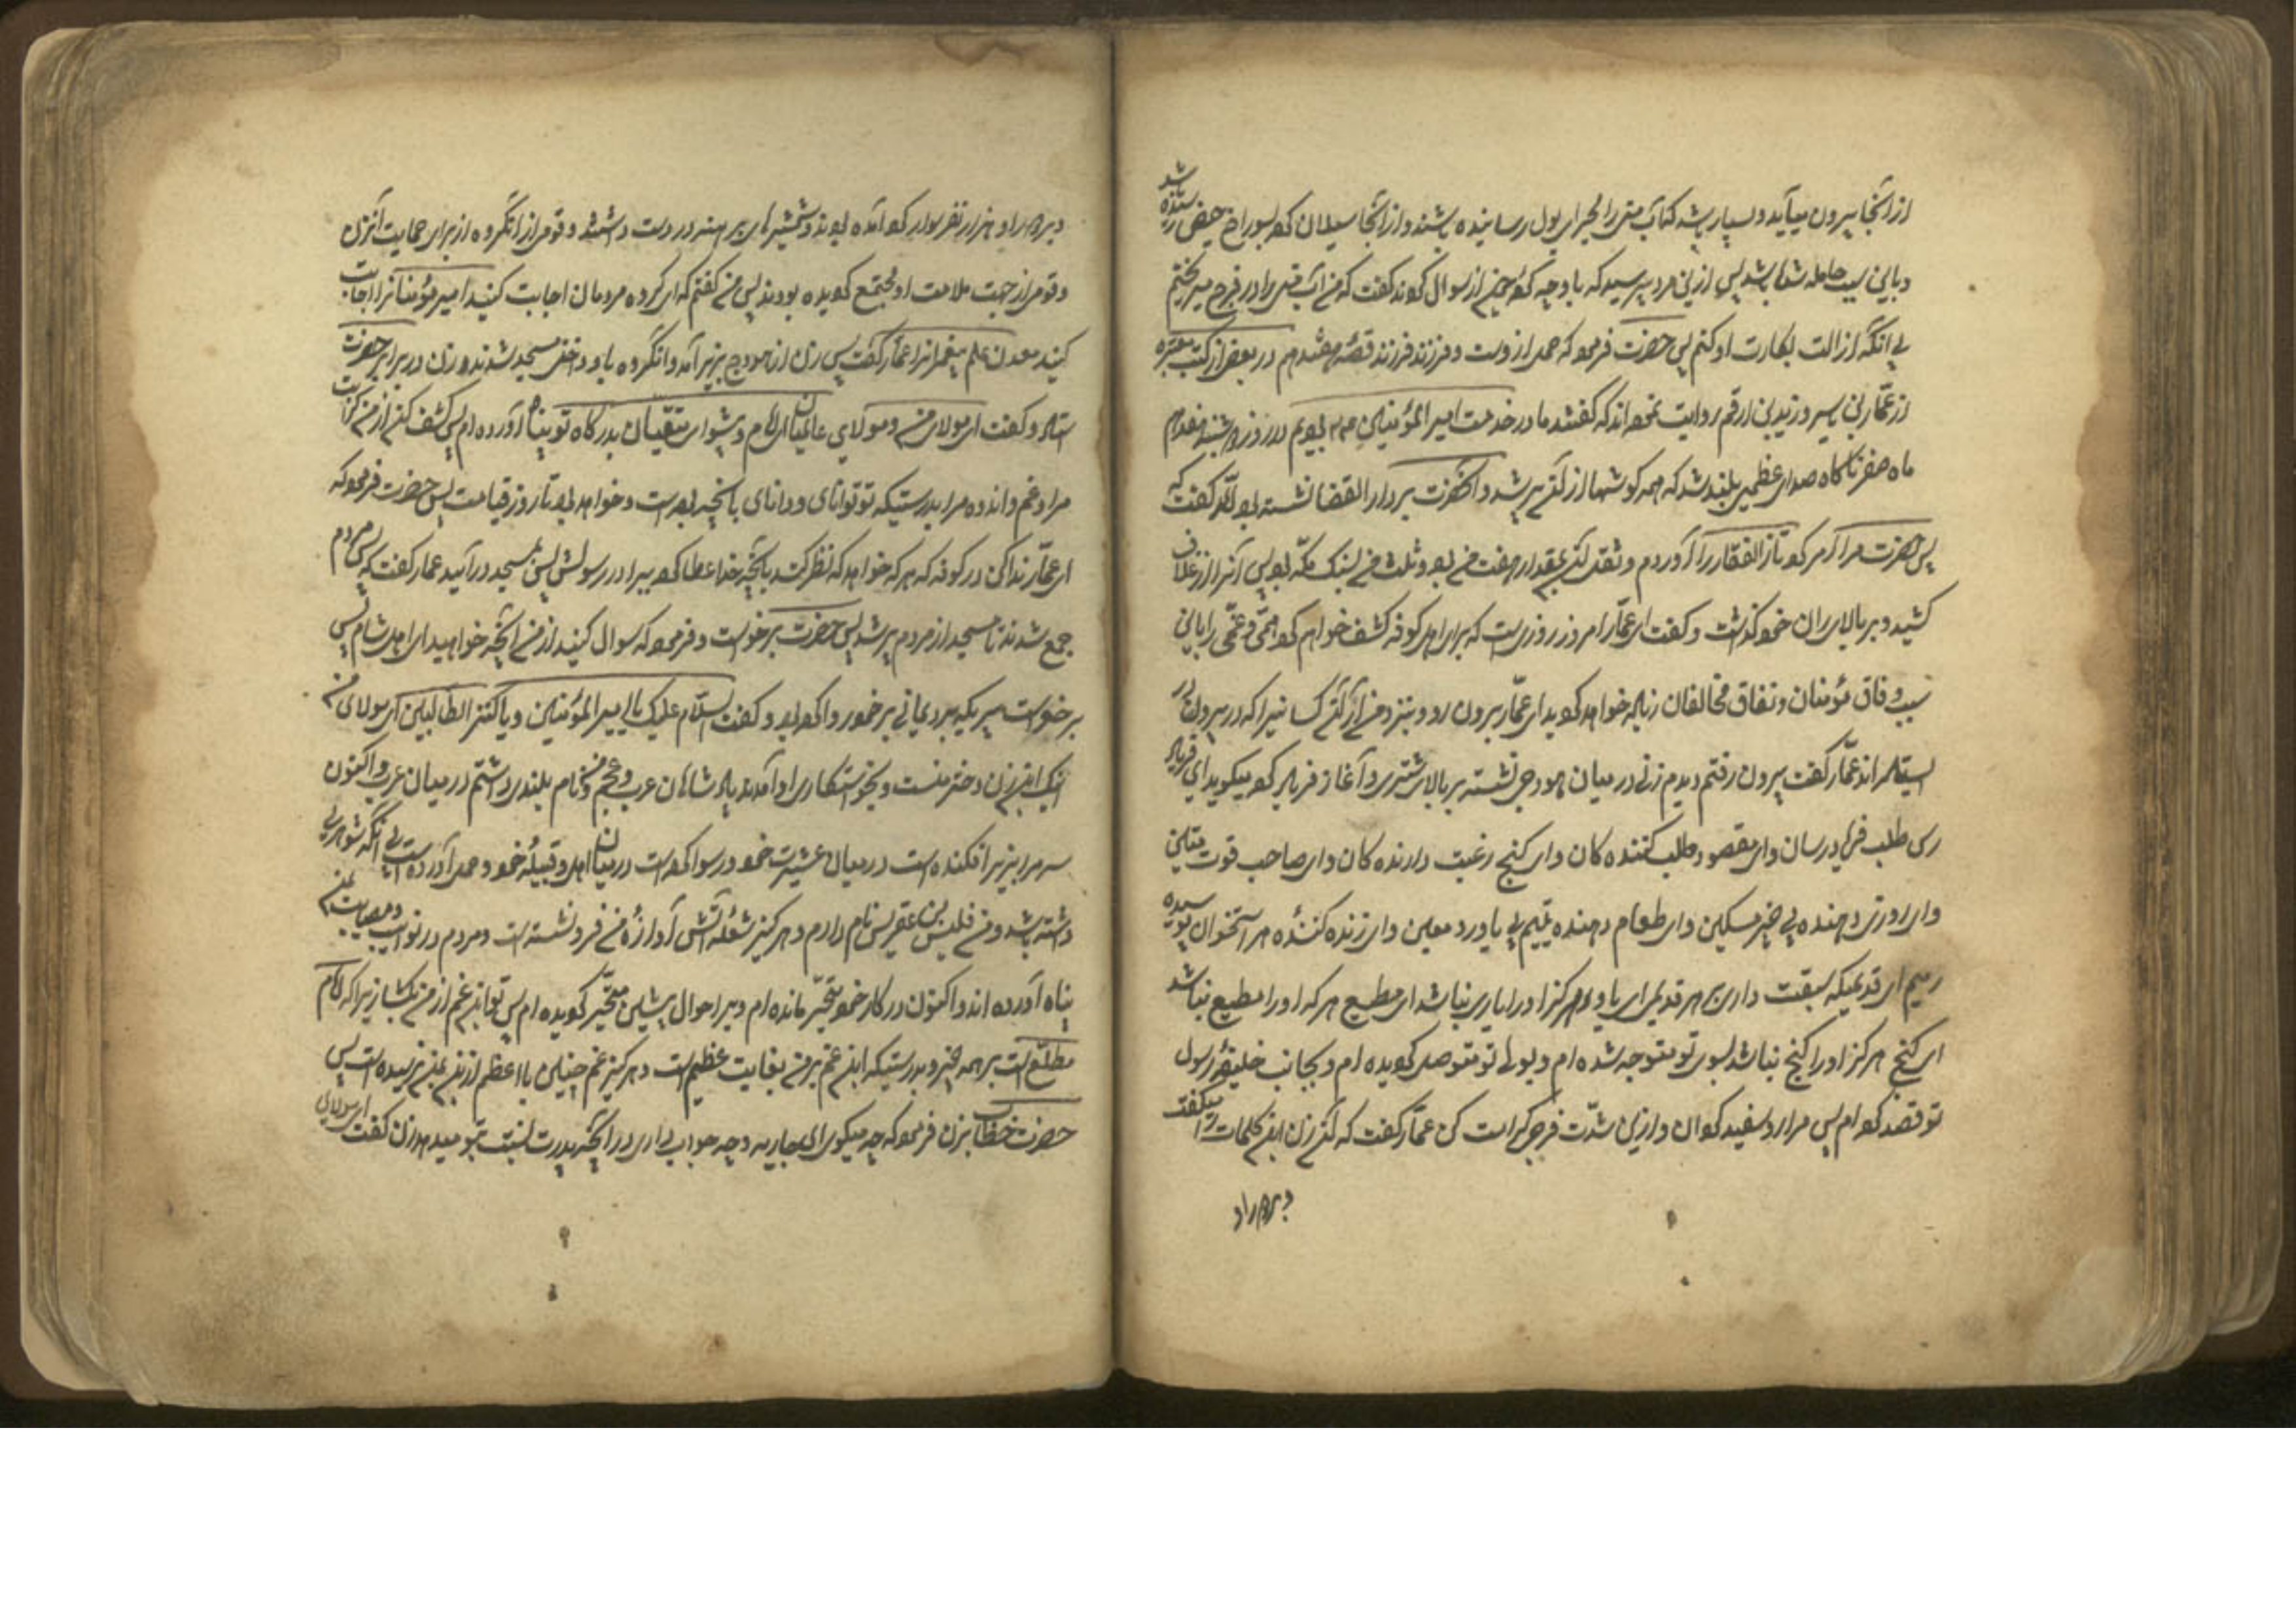 از انجا بیرون میآید و بسیار باشد که آب منی را بمجرای بول رسانیده باشند و از انجا سیلان کرده بسوراخ حیض رسیده باشد
و باین سبب حامله شده باشد پس ازین مرد بپرسید که با وجه کوچون ازو سوال کردند گفت که من آب منی را در فرج میریختم
بی انکه ازالت بکارت او کنم پس حضرت فرمود که حمل از اوست و فرزند فرزند قصّه هفتدهم در بعضی از کتب معتبره
از عمّار بن یاسر و زید بن ارقم روایت نموده اند که گفتند ما در خدمت امیر المؤمنین بودیم در روز دوشنبه هفدهم
ماه صفر ناکاه صدای عظیمی بلند شد که همه کوشها از آن پر شد و آنحضرت بر دار القضا نشسته بود گفت که
پس حضرت مرا امر کرد تا ذالفقار را آوردم و ثقل آن بمقدار هفت من بود و ثلث من بسنک مکّه بود پس آنرا از غلاف
کشید و بر بالای ران خود گذاشت و گفت ای عمّار امروز روزی است که برای اهل کوفه کشف خواهم کرد همّی و غمّی را باین
سبب وفاق مؤمنان و نفاق مخالفان زیاده خواهد کردید ای عمّار بیرون رو و بنزد من آر آن کسانیرا که در بیرون در
ایستاده اند عمّار گفت بیرون رفتم دیدم زنی در میان هودجی نشسته بر بالای شتری و آغاز فریاد کرده میکوید ای فریاد
رس طلب فریادرسان و ای مقصود طلب کننده کان و ای کنج رغبت دارنده کان و ای صاحب قوت متین
و ای روزی دهنده بی خیر مسکین و ای طعام دهنده یتیم بی یاور و معین و ای زنده کننده هر استخوان پوسیده
رمیم ای قدیمیکه سبقت داری بر هر قدیمی ای یاور هر کز او را یاری نباشد ای مطیع هر که او را مطیع نباشد
ای کنج هر کز او را کنج نباشد بسوی تو متوجه شده ام و بولای تو متوصل کردیده ام و بجانب خلیفهٔ رسول
تو قصد کرده ام پس مرا رو سفید کردان و ازین شدّت فرج کرامت کن عمّار گفت که آن زن این کلمات را میگفت
و بر دور او
و بر دور او هزار نفر سوار کرد آمده بودند و شمشیرهای برهنه در دست داشتند و قومی از انگروه از برای حمایت آنزن
و قومی از جهت ملامت او مجتمع کردیده بودند پس من گفتم که ای گروه مردمان اجابت کنید امیر مؤمنانرا اجابت
کنید معدن علم پیغمبرانرا عمّار گفت پس زن از هودج بزیر آمد و انگروه با او داخل مسجد شدند و زن در برابر حضرت
ستاد و کفت ای مولای من و مولای عالمیان ای امام و پیشوای متقیان بدرکاه تو پناه آورده ام پس کشف کن از من کربت
مرا و غم و اندوه مرا بدرستیکه تو توانای و دانای بانچه بوده است و خواهد بود تا روز قیامت پس حضرت فرمود که
ای عمّار ندا کن در کوفه که هر که خواهد که نظر کند بانچه خدا عطا کرده برادر رسولش پس بمسجد درآید عمار کفت که پس مردم
جمع شدند تا مسجد از مردم پر شد پس حضرت برخواست و فرمود که سوال کنید از من آنچه خواهید ای اهل شام پس
برخواست پیریکه برد یمانی بر خود ردا کرده بود و کفت السّلام علیک یا امیر المؤمنین و یا کنز الطالبین ای مولای من
اینک این زن دختر منست و بخواستکاری او آمدند پادشاهان عرب و عجم و من نام بلندی داشتم در میان عرب و اکنون
سر مرا بزیر افکنده است در میان عشیرت خود و رسوا کرده است در میان اهل و قبیلهٔ خود و حمل آورده است بی انکه شوهری
داشته باشد و من فلیس بن عقریس نام دارم و هر کز شعلهٔ آتش آوازهٔ من فرو نشسته است و مردم در نوایب و مصایب بمن
پناه آورده اند و اکنون در کار خود متحیّر مانده ام و بر احوال پیشین متحیّر کردیده ام پس تواند غم از من بکشا زیرا که امام
مطلّع است بر همه خبر و بدرستیکه این غم بر من بغایت عظیم است و هر کز غم چنین یا اعظم ازین بمن نرسیده است پس
حضرت خطاب بزن فرمود که چه میکوی ای جاریه و چه جواب داری در آنچه پدرت نسبت بتو میدهد زن کفت ای مولای